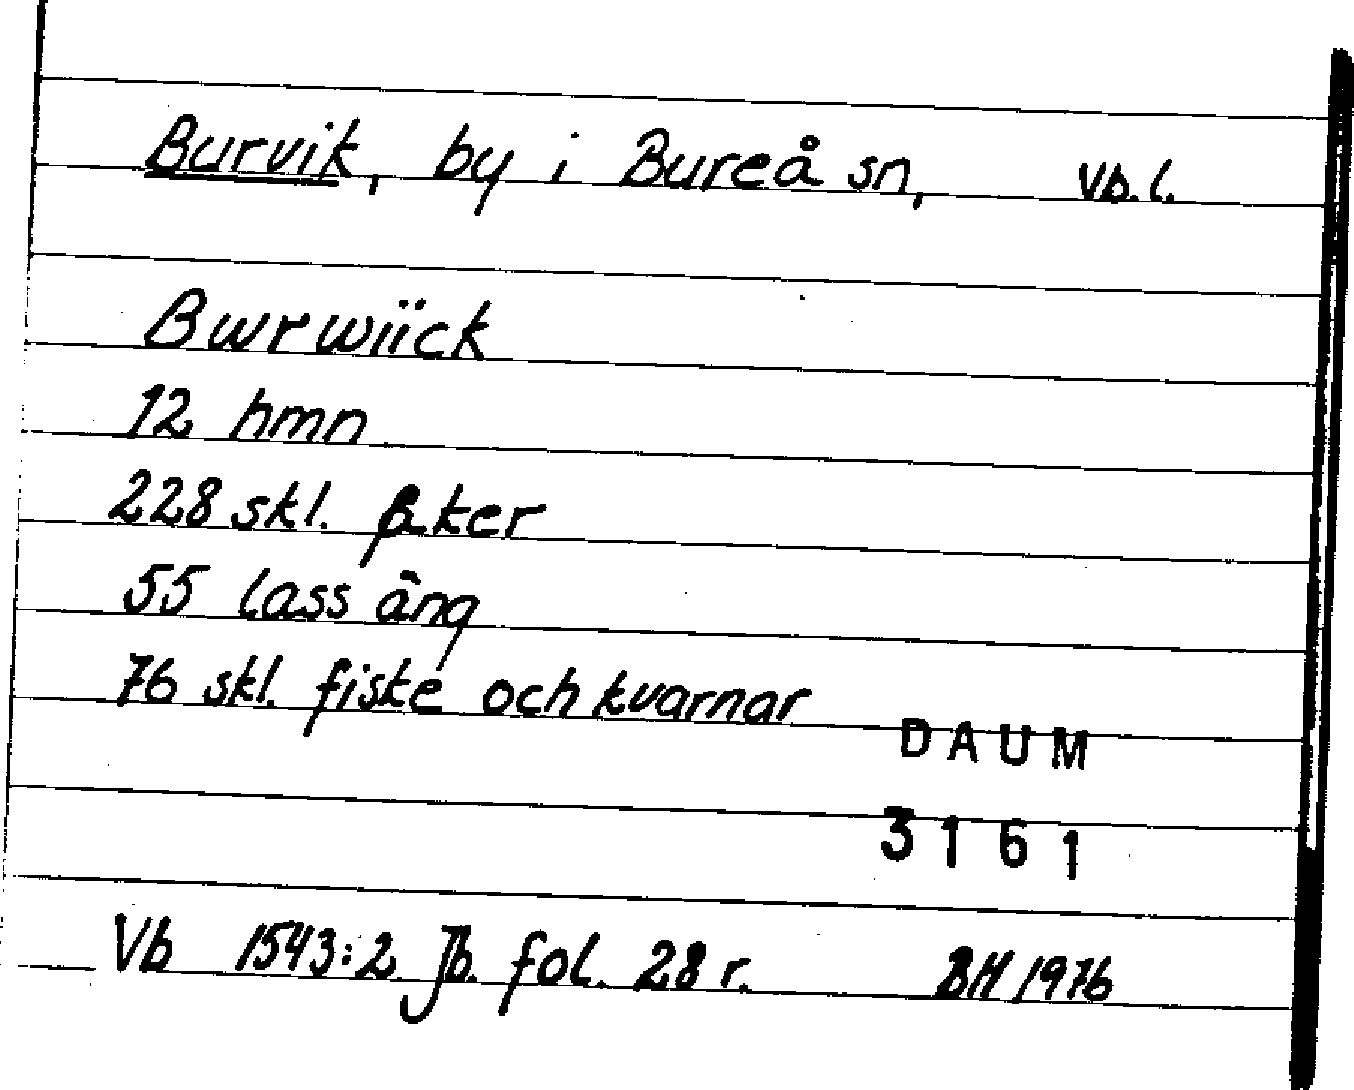 Burvik, by i Bureå sn, Vb. l.
Bwrwiick
12 hmn
228 skl. åker
55 lass äng
76 skl. fiske och kvarnar
DAUM
3161
Vb 1543:2 Jb. fol. 28 r. BH 1976